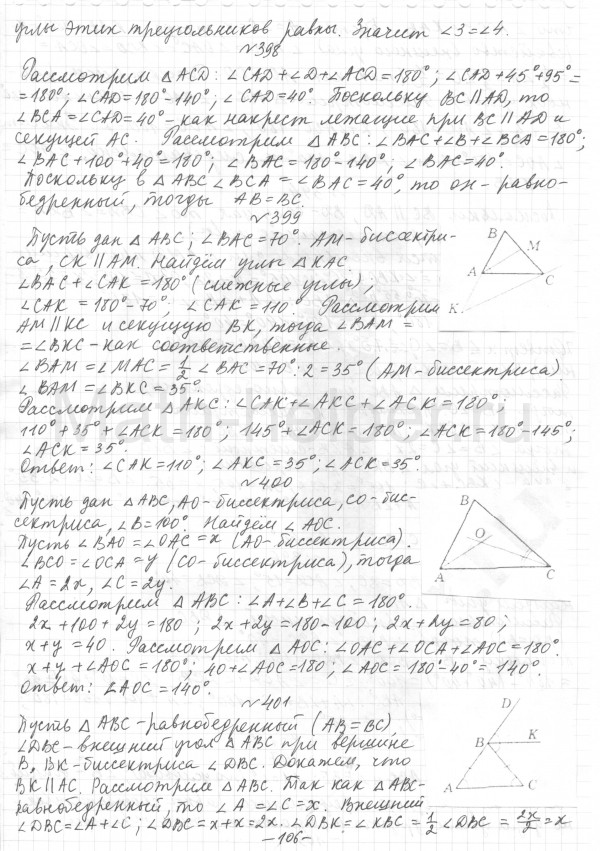 углы этих треугольников равны. Значит ∠3=∠4.
№398
Рассмотрим △ACD: ∠CAD+∠D+∠ACD=180°; ∠CAD+45°+95°=
=180°; ∠CAD=180°-140°; ∠CAD=40°. Поскольку BC∥AD, то
∠BCA=∠CAD=40°-как накрест лежащие при BC∥AD и
секущей AC. Рассмотрим △ABC: ∠BAC+∠B+∠BCA=180°;
∠BAC+100°+40°=180°; ∠BAC=180°-140°; ∠BAC=40°.
Поскольку в △ABC ∠BCA=∠BAC=40°, то он-равно-
бедренный, тогда AB=BC.
№399
Пусть дан △ABC; ∠BAC=70°. AM-биссектри-
са, CK∥AM. Найдём углы △KAC
∠BAC+∠CAK=180° (смежные углы);
∠CAK=180°-70°; ∠CAK=110°. Рассмотрим
AM∥KC и секущую BK, тогда ∠BAM=
=∠BKC-как соответственные.
∠BAM=∠MAC=1/2 ∠BAC=70°:2=35° (AM-биссектриса)
∠BAM=∠BKC=35°.
Рассмотрим △AKC: ∠CAK+∠AKC+∠ACK=180°;
110°+35°+∠ACK=180°; 145°+∠ACK=180°; ∠ACK=180°-145°;
∠ACK=35°.
Ответ: ∠CAK=110°; ∠AKC=35°; ∠ACK=35°.
B
M
A
C
K
№400
Пусть дан △ABC, AO-биссектриса, CO-бис-
сектриса, ∠B=100°. Найдём ∠AOC.
Пусть ∠BAO=∠OAC=x (AO-биссектриса).
∠BCO=∠OCA=y (CO-биссектриса), тогда
∠A=2x, ∠C=2y.
Рассмотрим △ABC: ∠A+∠B+∠C=180°.
2x+100+2y=180; 2x+2y=180-100; 2x+2y=80;
x+y=40. Рассмотрим △AOC: ∠OAC+∠OCA+∠AOC=180°.
x+y+∠AOC=180°; 40+∠AOC=180; ∠AOC=180°-40°=140°.
Ответ: ∠AOC=140°.
B
O
A
C
№401
Пусть △ABC-равнобедренный (AB=BC)
∠DBC-внешний угол △ABC при вершине
B, BK-биссектриса ∠DBC. Докажем, что
BK∥AC. Рассмотрим △ABC. Так как △ABC-
равнобедренный, то ∠A=∠C=x. Внешний
∠DBC=∠A+∠C; ∠DBC=x+x=2x. ∠DBK=∠KBC=1/2 ∠DBC=2x/2=x
D
B
K
A
C
-106-